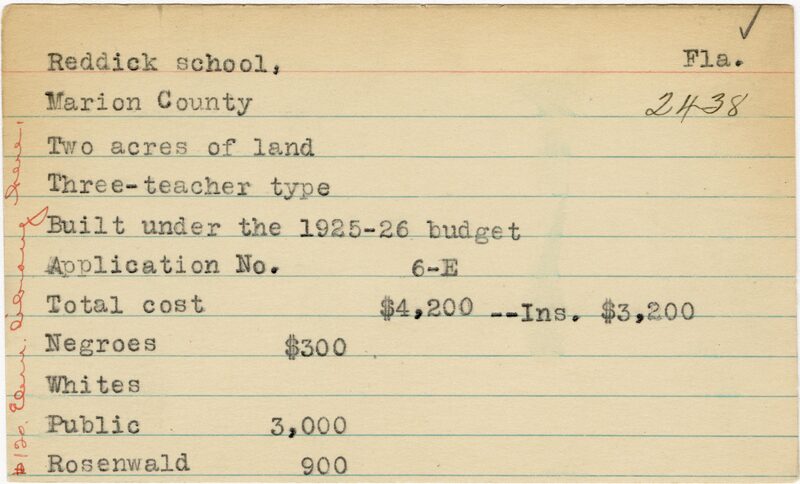 Reddick school, Fla.
Marion County 2438
Two acres of land
Three-teacher type
Built under the 1925-26 budget
Application No. 6-E
Total cost $4,200 --Ins. $3,200
Negroes $300
Whites
Public 3,000
Rosenwald 900
$120. Elem. Library